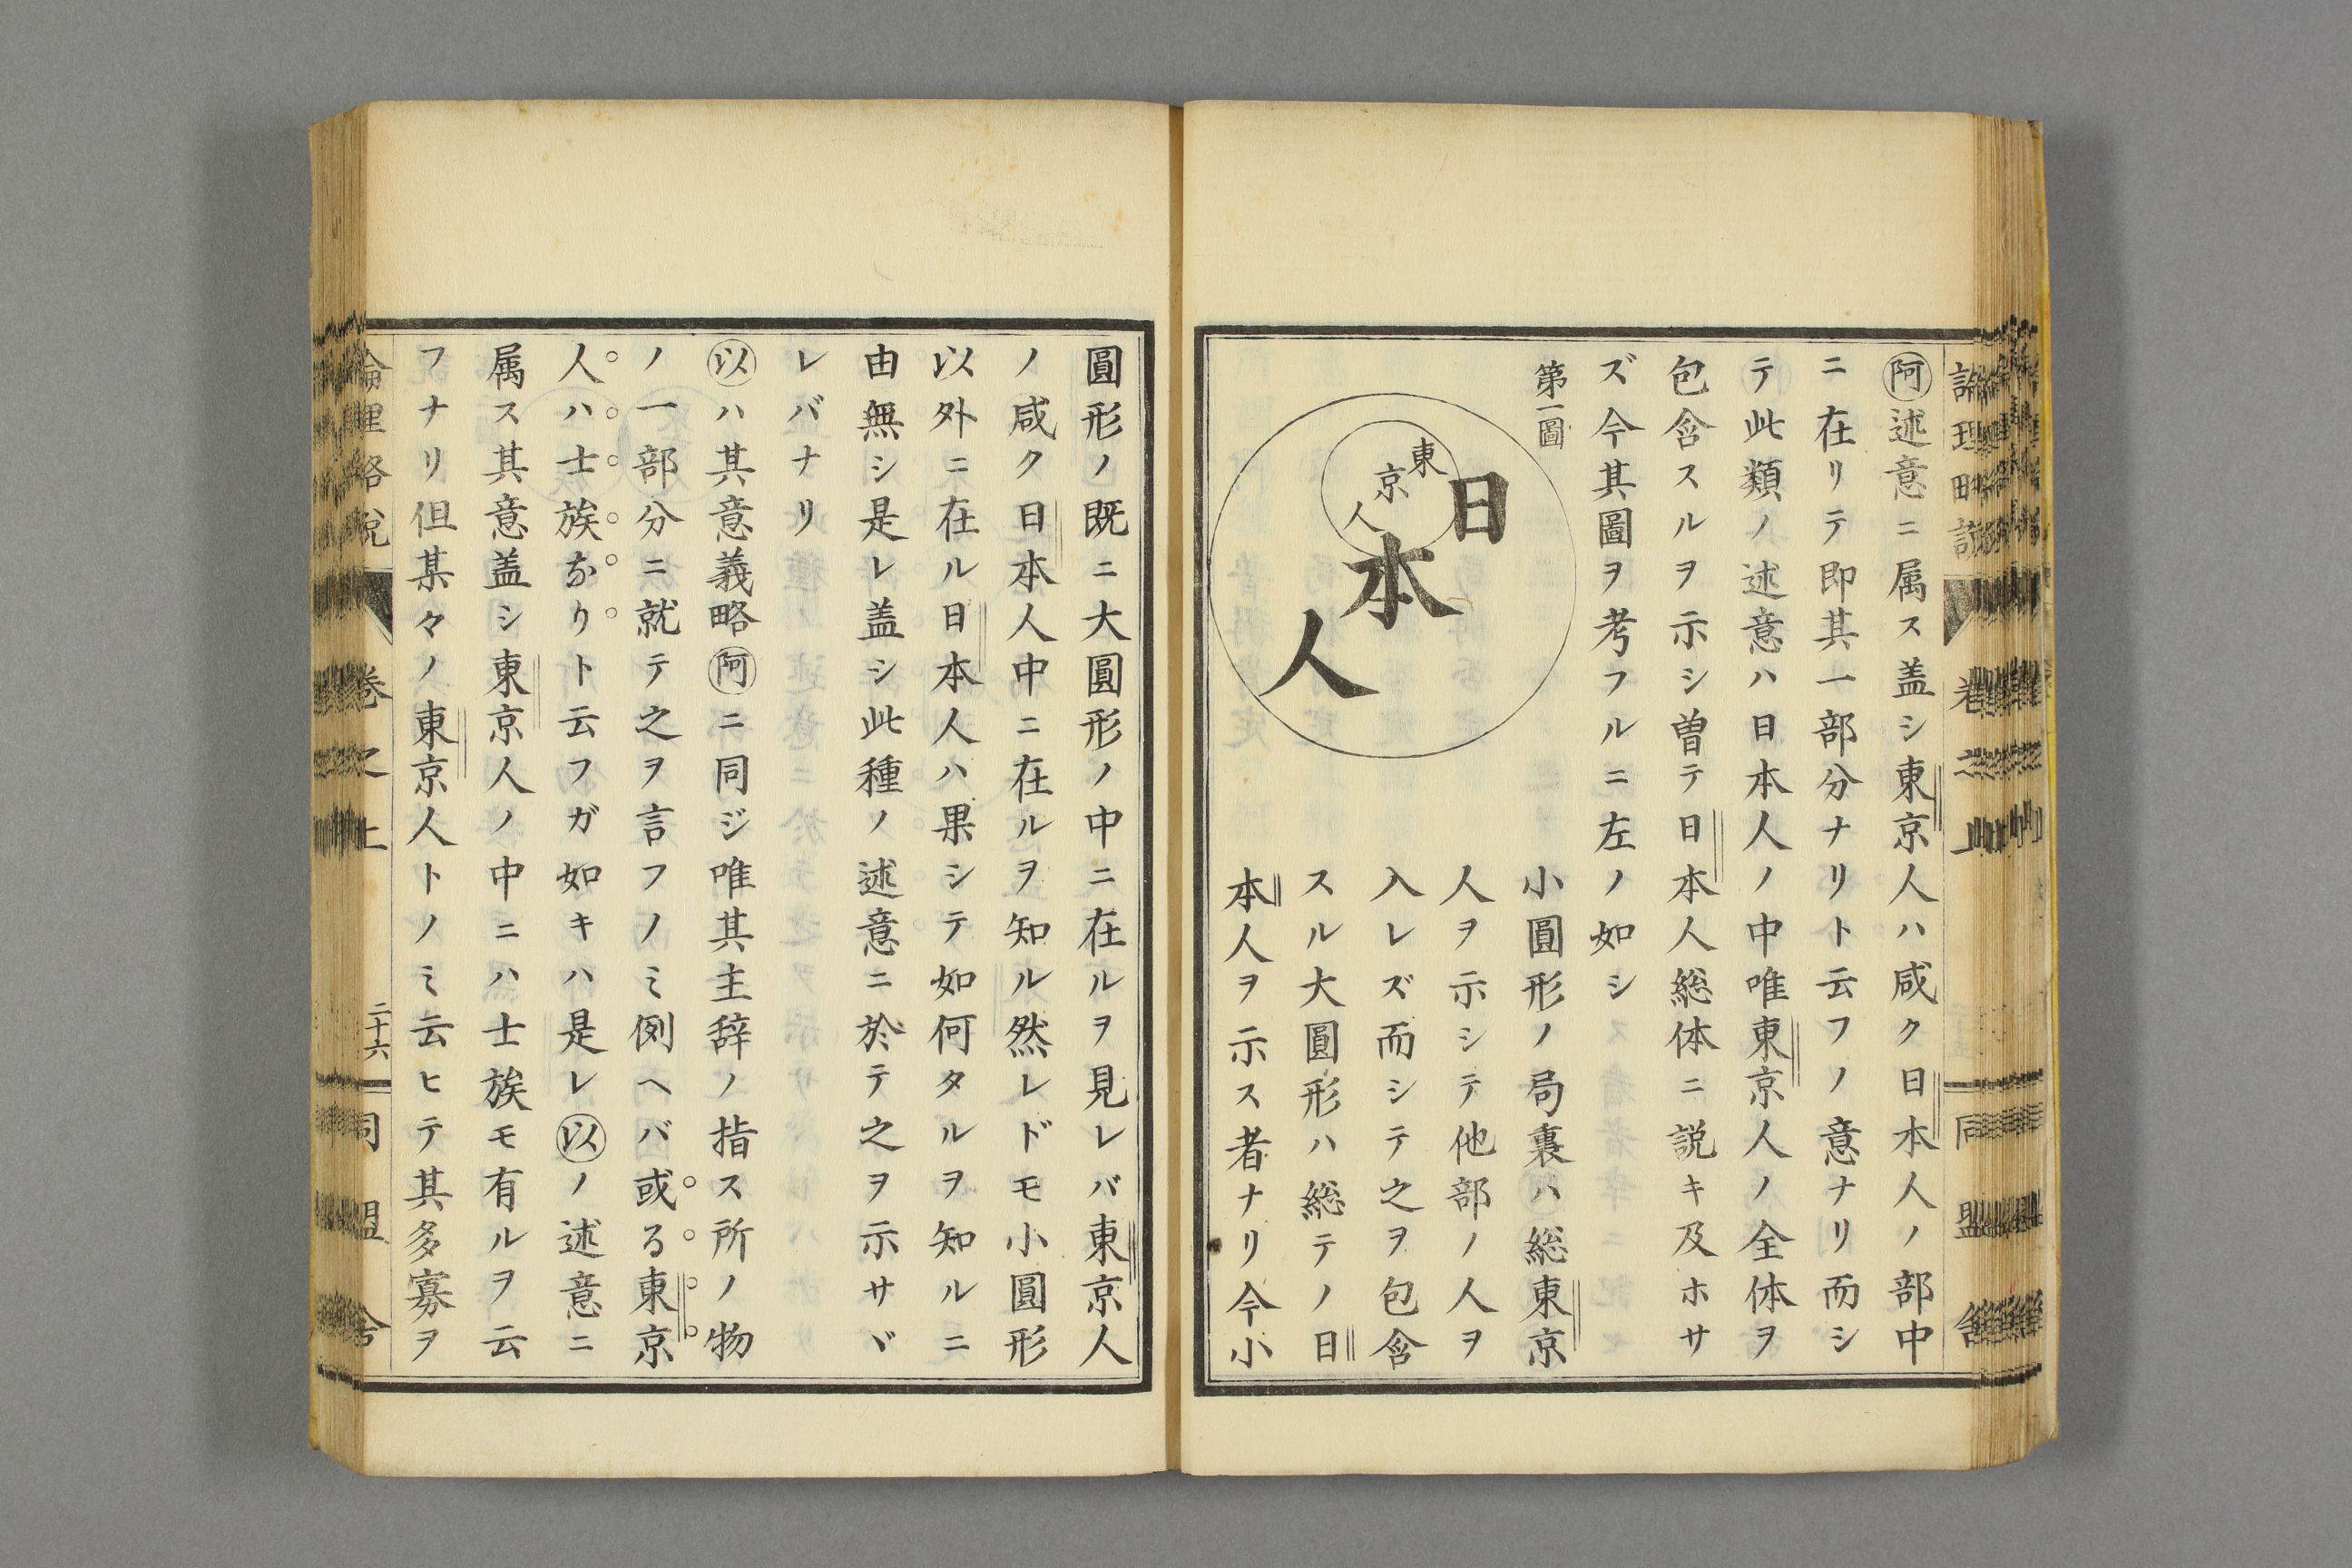 論理略説 卷之上 同盟舎
㋐阿述意ニ属ス盖シ東京人ハ咸ク日本人ノ部中
ニ在リテ即其一部分ナリト云フノ意ナリ而シ
テ此類ノ述意ハ日本人ノ中唯東京人ノ全体ヲ
包含スルヲ示シ曽テ日本人総体ニ説キ及ホサ
ズ今其圖ヲ考フルニ左ノ如シ
第一圖
東京人
日本人
小圓形ノ局裏ハ総東京
人ヲ示シテ他部ノ人ヲ
入レズ而シテ之ヲ包含
スル大圓形ハ総テノ日
本人ヲ示ス者ナリ今小
圓形ノ既ニ大圓形ノ中ニ在ルヲ見レバ東京人
ノ咸ク日本人中ニ在ルヲ知ル然レドモ小圓形
以外ニ在ル日本人ハ果シテ如何タルヲ知ルニ
由無シ是レ盖シ此種ノ述意ニ於テ之ヲ示サヾ
レバナリ
以ハ其意義略阿ニ同ジ唯其主辞ノ指ス所ノ物
ノ一部分ニ就テ之ヲ言フノミ例ヘバ或る東京
人ハ士族なりト云フガ如キハ是レ以ノ述意ニ
属ス其意盖シ東京人ノ中ニハ士族モ有ルヲ云
フナリ但某々ノ東京人トノミ云ヒテ其多寡ヲ
論理略説 卷之上 二十六 同盟舎